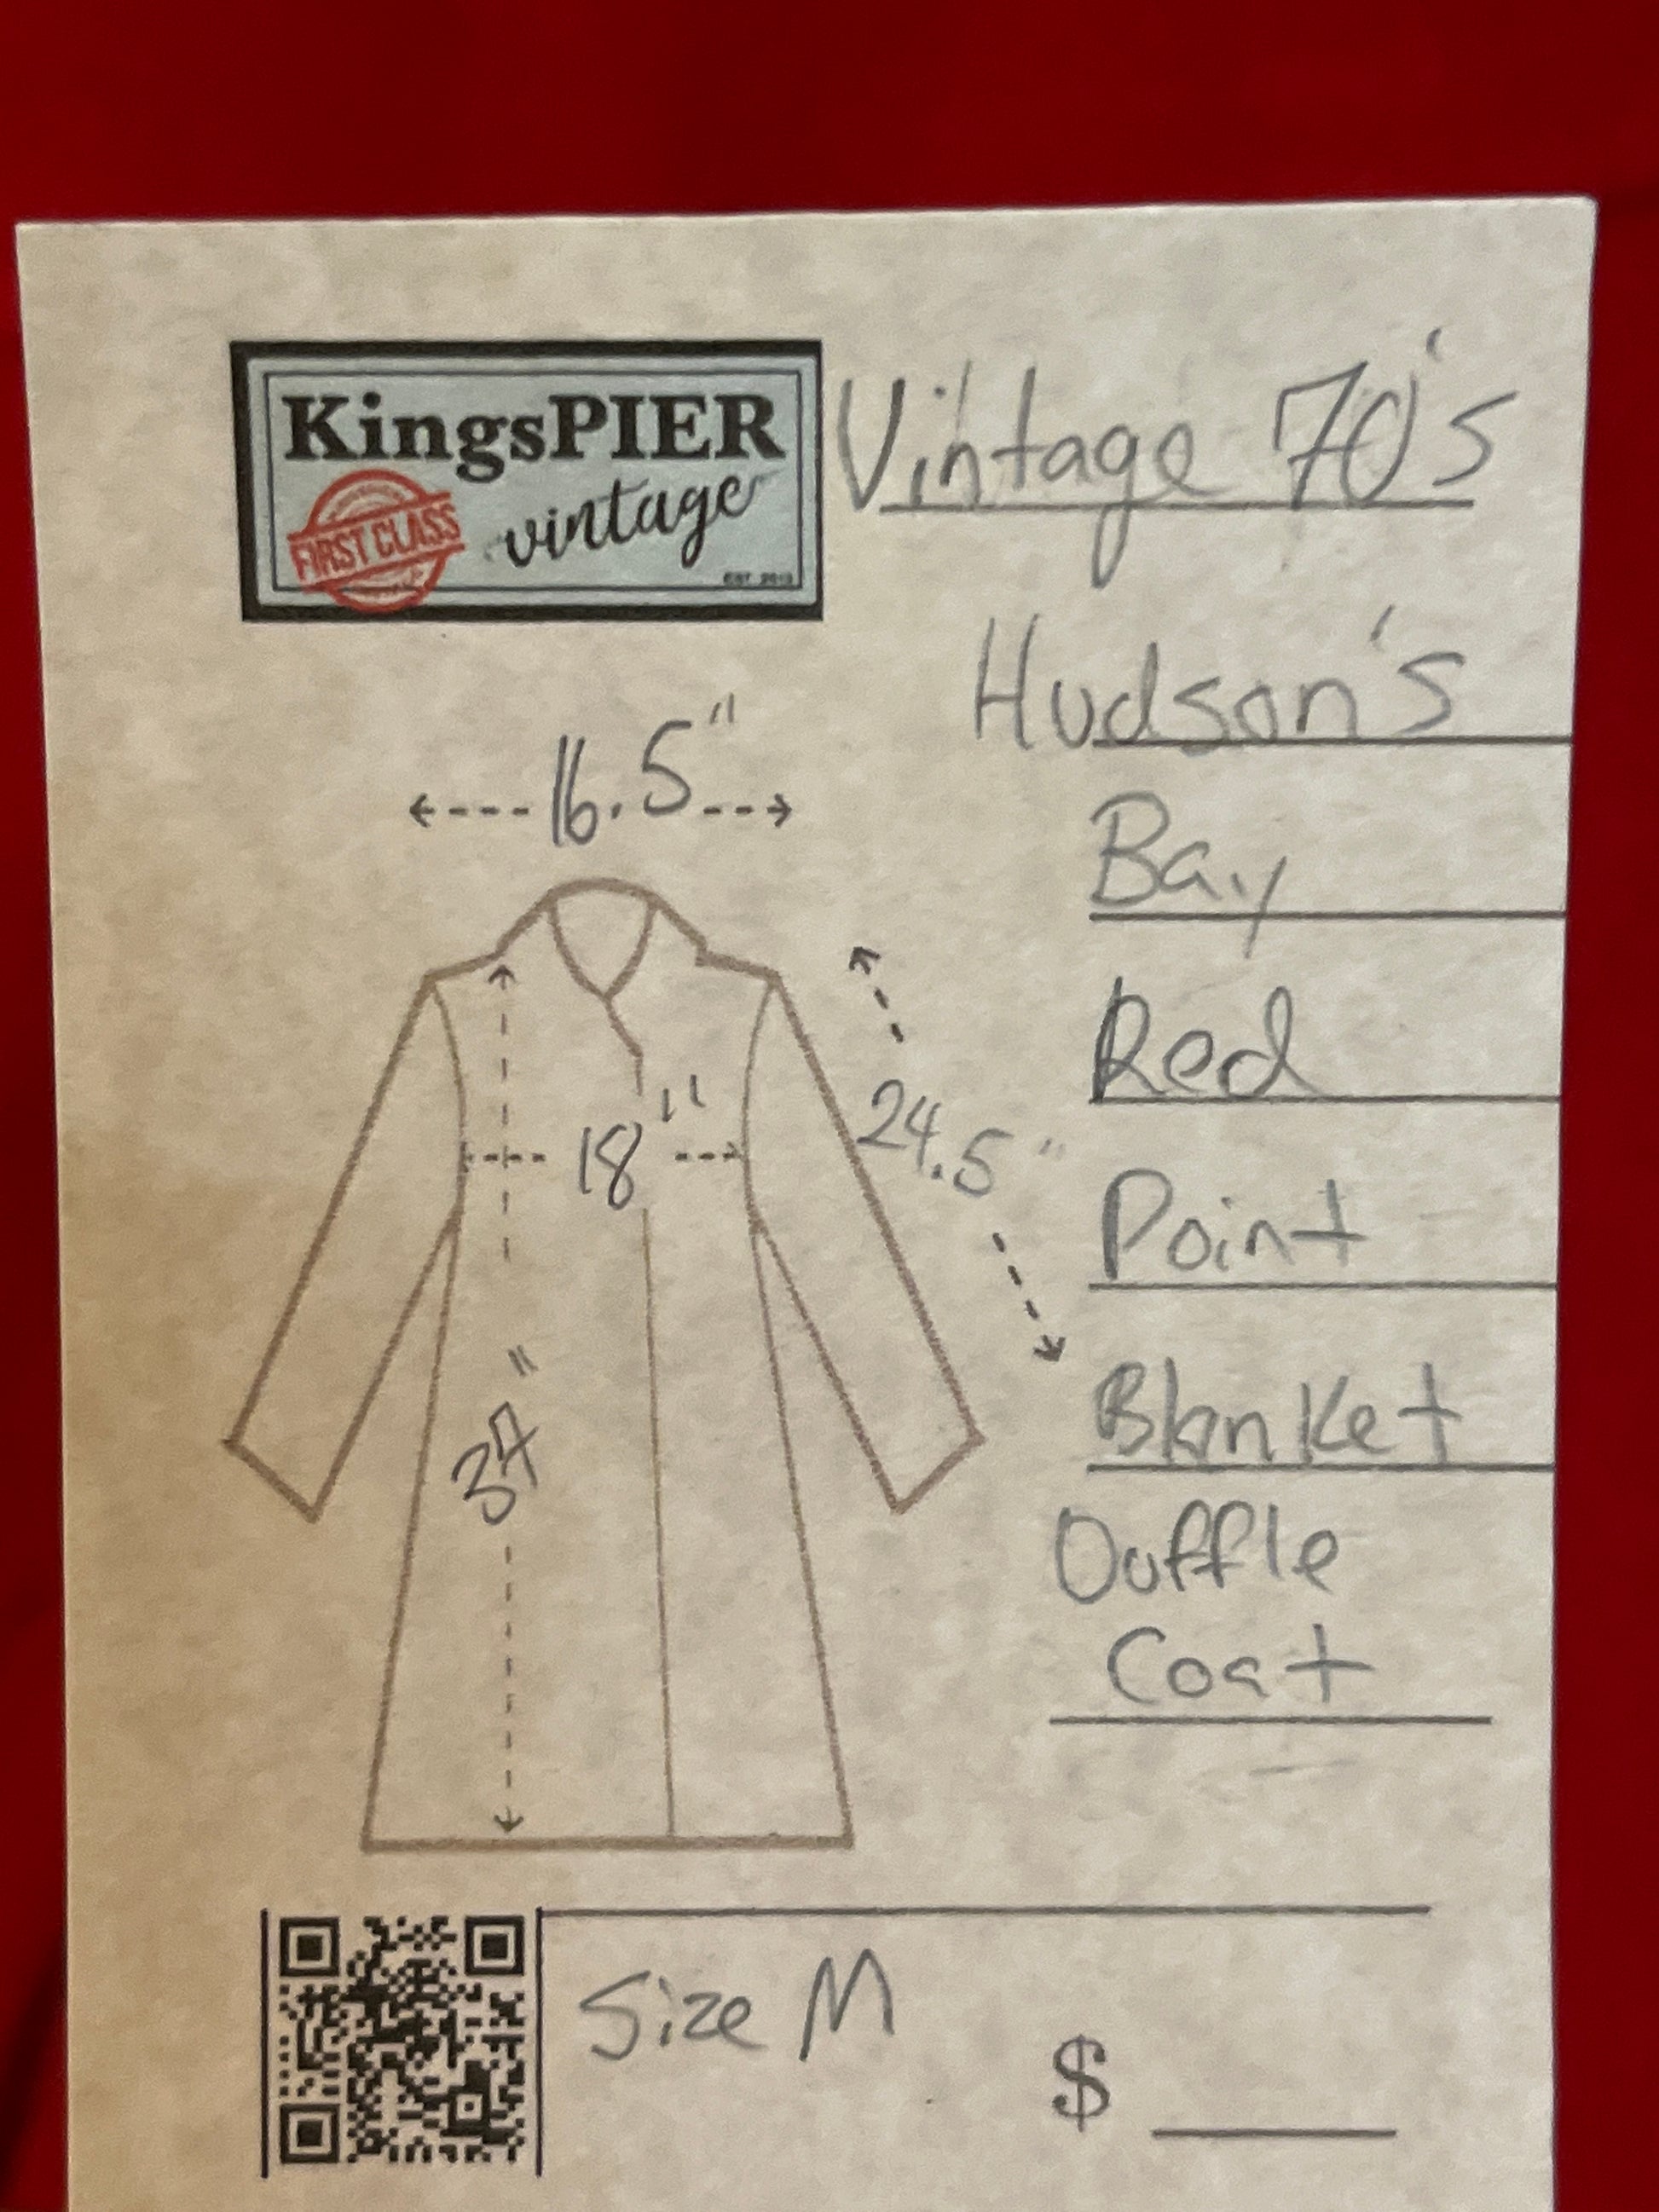 KingsPIER
FIRST CLASS
vintage
Vintage 70's
Hudson's
Bay
Red
Point
Blanket
Duffle
Coat
16.5"
18"
24.5"
37"
Size M
$